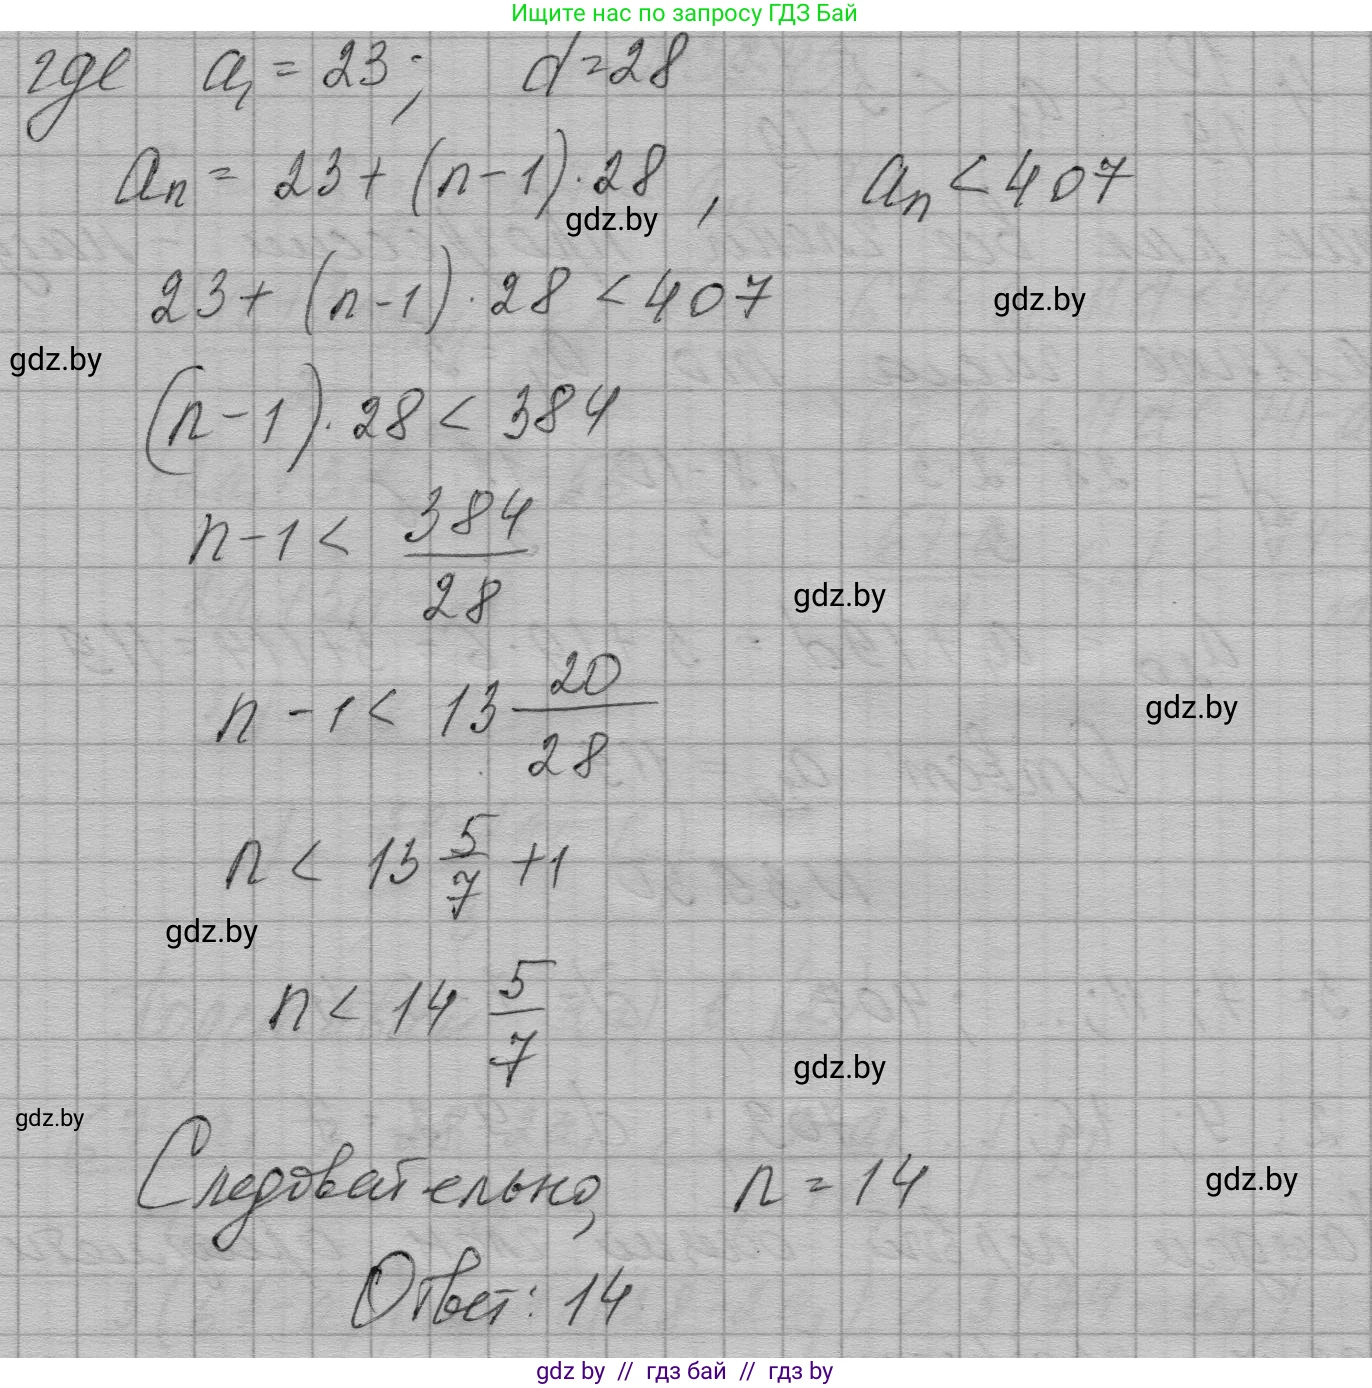 Ищите нас по запросу ГДЗ Бай
где a₁ = 23; d = 28
aₙ = 23 + (n - 1) · 28, aₙ < 407
gdz.by
23 + (n - 1) · 28 < 407
gdz.by
gdz.by
(n - 1) · 28 < 384
n - 1 < 384/28
gdz.by
n - 1 < 13 20/28
gdz.by
n < 13 5/7 + 1
gdz.by
n < 14 5/7
gdz.by
gdz.by
Следовательно, n = 14
gdz.by
Ответ: 14
gdz by // гдз бай // гдз by